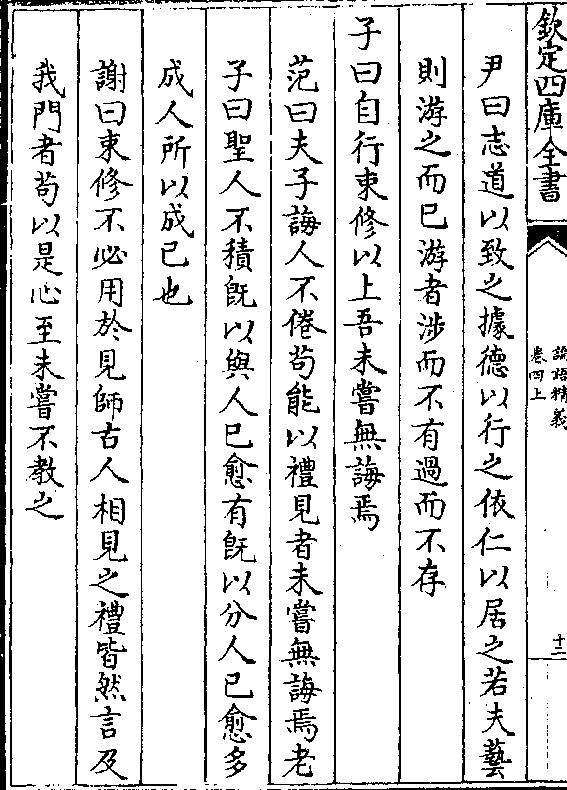 欽定四庫全書
論語精義
卷四上
十二
尹曰志道以致之據德以行之依仁以居之若夫藝
則游之而已游者涉而不有過而不存
子曰自行束修以上吾未嘗無誨焉
范曰夫子誨人不倦苟能以禮見者未嘗無誨焉老
子曰聖人不積旣以與人已愈有旣以分人已愈多
成人所以成已也
謝曰束修不必用於見師古人相見之禮皆然言及
我門者苟以是心至未嘗不教之